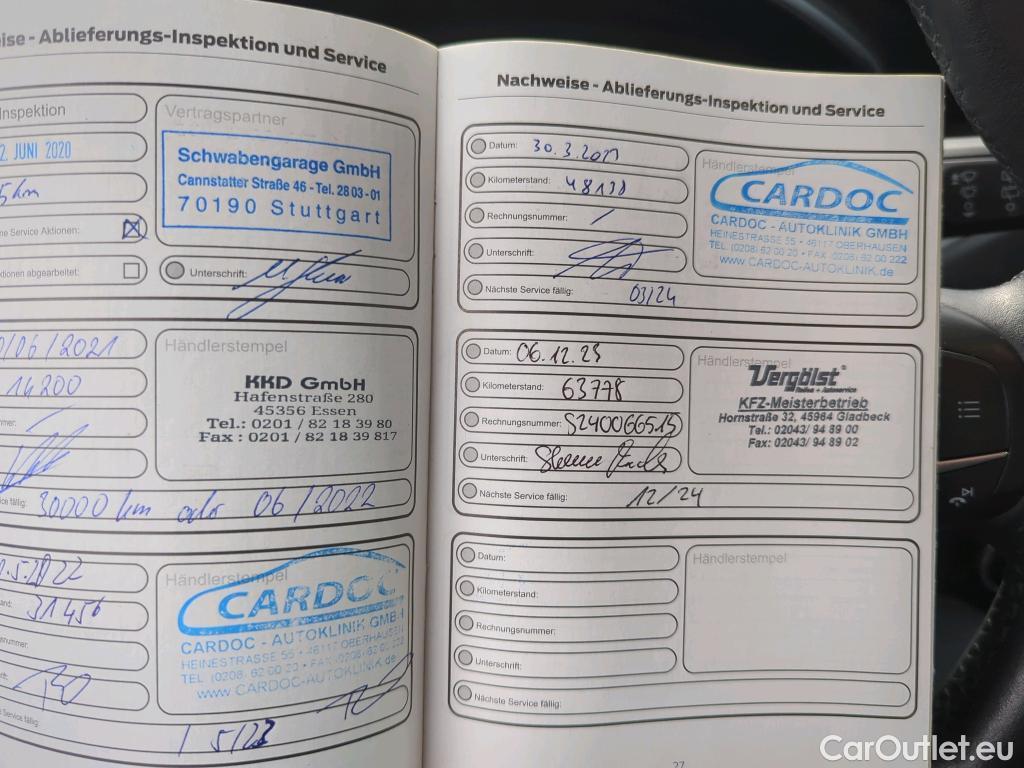 ise - Ablieferungs-Inspektion und Service
Inspektion
2. JUNI 2020
5km
ne Service Aktionen:
tionen abgearbeitet:
Vertragspartner
Schwabengarage GmbH
Cannstatter Straße 46 - Tel. 28 03 - 01
70190 Stuttgart
Unterschrift:
0/06/2021
14200
mer:
Händlerstempel
KKD GmbH
Hafenstraße 280
45356 Essen
Tel.: 0201 / 82 18 39 80
Fax : 0201 / 82 18 39 817
ce fällig: 30000 km oder 06/2022
.5.2022
and: 31456
gsnummer:
ift:
Händlerstempel
CARDOC
CARDOC - AUTOKLINIK GMBH
HEINESTRASSE 55 • 46117 OBERHAUSEN
TEL (0208) 62 00 20 • FAX (0208) 62 00 222
www.CARDOC-AUTOKLINIK.de
Service fällig: 5/23
Nachweise - Ablieferungs-Inspektion und Service
Datum: 30.3.
Kilometerstand: 48138
Rechnungsnummer: /
Unterschrift:
Nächste Service fällig: 03/24
Händlerstempel
CARDOC
CARDOC - AUTOKLINIK GMBH
HEINESTRASSE 55 • 46117 OBERHAUSEN
TEL (0208) 62 00 20 • FAX (0208) 62 00 222
www.CARDOC-AUTOKLINIK.de
Datum: 06.12.23
Kilometerstand: 63778
Rechnungsnummer: S240066515
Unterschrift:
Nächste Service fällig: 12/24
Händlerstempel
Vergölst
Reifen + Autoservice
KFZ-Meisterbetrieb
Hornstraße 32, 45964 Gladbeck
Tel.: 02043/ 94 89 00
Fax: 02043/ 94 89 02
Datum:
Kilometerstand:
Rechnungsnummer:
Unterschrift:
Nächste Service fällig:
Händlerstempel
27
CarOutlet.eu